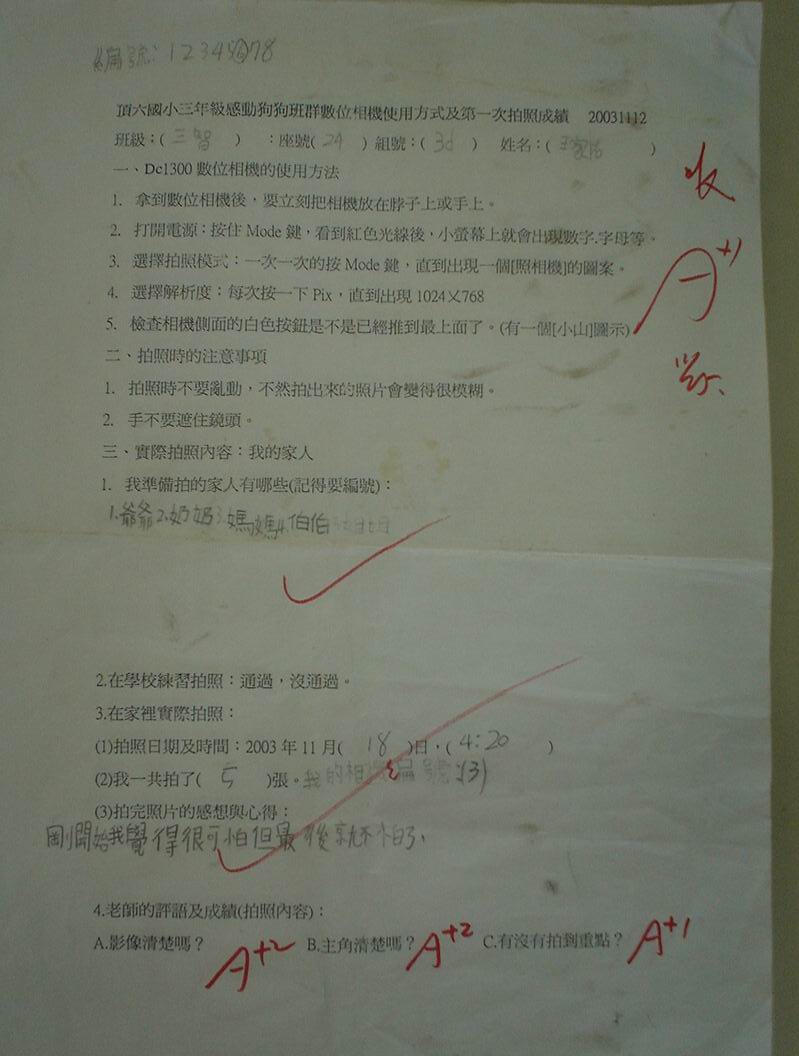 編號:12345678
頂六國小三年級感動狗狗班群數位相機使用方式及第一次拍照成績 20031112
班級:( 三智 ) :座號( 24 ) 組號:( 3d ) 姓名:( )
一、Dc1300 數位相機的使用方法
1. 拿到數位相機後,要立刻把相機放在脖子上或手上。
2. 打開電源:按住 Mode 鍵,看到紅色光線後,小螢幕上就會出現數字.字母等。
3. 選擇拍照模式:一次一次的按 Mode 鍵,直到出現一個[照相機]的圖案。
4. 選擇解析度:每次按一下 Pix,直到出現 1024×768
5. 檢查相機側面的白色按鈕是不是已經推到最上面了。(有一個[小山]圖示)
A+1
二、拍照時的注意事項
1. 拍照時不要亂動,不然拍出來的照片會變得很模糊。
2. 手不要遮住鏡頭。
三、實際拍照內容:我的家人
1. 我準備拍的家人有哪些(記得要編號):
1.爺爺2.奶奶3.媽媽4.伯伯
2.在學校練習拍照:通過,沒通過。
3.在家裡實際拍照:
(1)拍照日期及時間:2003 年 11 月( 18 )日,( 4:20 )
(2)我一共拍了( 5 )張。我的相機編號:(3)
(3)拍完照片的感想與心得:
剛開始我覺得很可怕但最後就不怕了、
4.老師的評語及成績(拍照內容):
A.影像清楚嗎? A+2 B.主角清楚嗎? A+2 C.有沒有拍到重點? A+1